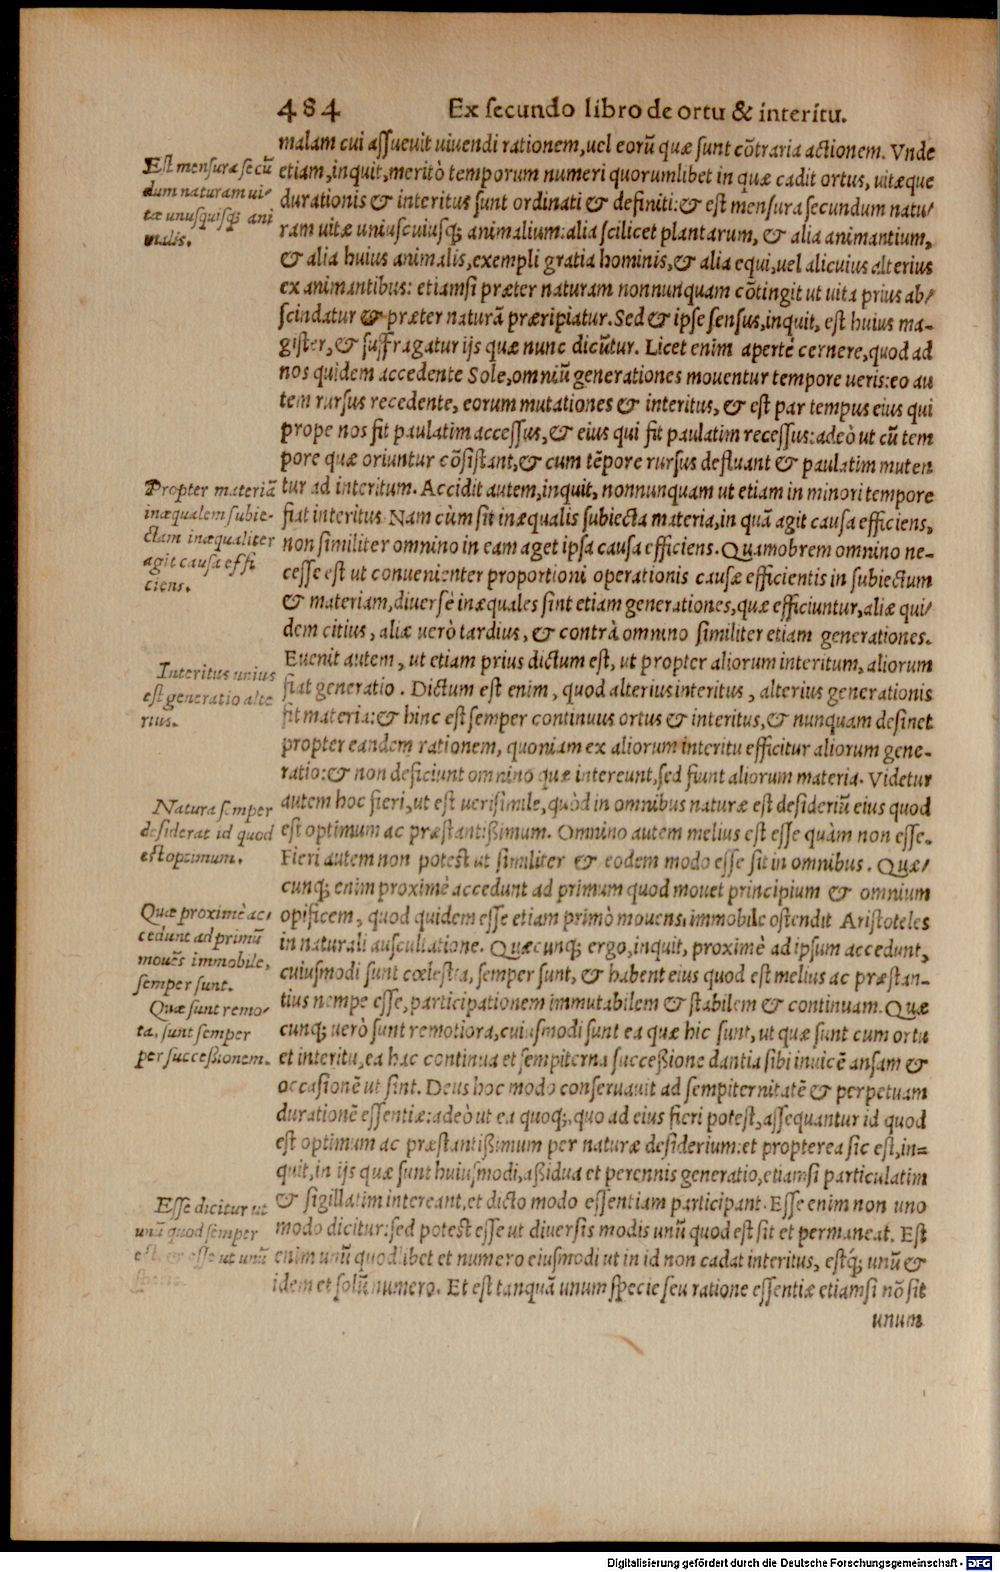 484 Ex secundo libro de ortu & interitu.
malam cui assueuit uiuendi rationem, uel eorũ quæ sunt cõtraria actionem. Vnde
etiam, inquit, meritò temporum numeri quorumlibet in quæ cadit ortus, uitæque
durationis & interitus sunt ordinati & definiti: & est mensura secundum natu/
ram uitæ uniuscuiusq; animalium: alia scilicet plantarum, & alia animantium,
& alia huius animalis, exempli gratia hominis, & alia equi, uel alicuius alterius
ex animantibus: etiamsi præter naturam nonnunquam cõtingit ut uita prius ab/
scindatur & præter naturã præripiatur. Sed & ipse sensus, inquit, est huius ma-
gister, & suffragatur ijs quæ nunc dicũtur. Licet enim apertè cernere, quod ad
nos quidem accedente Sole, omniũ generationes mouentur tempore ueris: eo au
tem rursus recedente, eorum mutationes & interitus, & est par tempus eius qui
prope nos fit paulatim accessus, & eius qui fit paulatim recessus: adeò ut cũ tem
pore quæ oriuntur cõsistant, & cum tẽpore rursus defluant & paulatim muten
tur ad interitum. Accidit autem, inquit, nonnunquam ut etiam in minori tempore
fiat interitus. Nam cùm sit inæqualis subiecta materia, in quã agit causa efficiens,
non similiter omnino in eam aget ipsa causa efficiens. Quamobrem omnino ne-
cesse est ut conuenienter proportioni operationis causæ efficientis in subiectum
& materiam, diuersè inæquales sint etiam generationes, quæ efficiuntur, aliæ qui/
dem citius, aliæ uerò tardius, & contrà omnino similiter etiam generationes.
Euenit autem, ut etiam prius dictum est, ut propter aliorum interitum, aliorum
fiat generatio. Dictum est enim, quod alterius interitus, alterius generationis
fit materia: & hinc est semper continuus ortus & interitus, & nunquam desinet
propter eandem rationem, quoniam ex aliorum interitu efficitur aliorum gene-
ratio: & non deficiunt omnino quæ intereunt, sed fiunt aliorum materia. Videtur
autem hoc fieri, ut est uerisimile, quòd in omnibus naturæ est desideriũ eius quod
est optimum ac præstantißimum. Omnino autem melius est esse quàm non esse.
Fieri autem non potest ut similiter & eodem modo esse sit in omnibus. Quæ/
cunq; enim proximè accedunt ad primum quod mouet principium & omnium
opificem, quod quidem esse etiam primò mouens immobile ostendit Aristoteles
in naturali auscultatione. Quæcunq; ergo, inquit, proximè ad ipsum accedunt,
cuiusmodi sunt cœlestia, semper sunt, & habent eius quod est melius ac præstan-
tius nempe esse, participationem immutabilem & stabilem & continuam. Quæ
cunq; uerò sunt remotiora, cuiusmodi sunt ea quæ hic sunt, ut quæ sunt cum ortu
et interitu, ea hac continua et sempiterna succeßione dantia sibi inuicẽ ansam &
occasionẽ ut sint. Deus hoc modo conseruauit ad sempiternitatẽ & perpetuam
durationẽ essentiæ: adeò ut ea quoq;, quo ad eius fieri potest, assequantur id quod
est optimum ac præstantißimum per naturæ desiderium: et propterea sic est, in=
quit, in ijs quæ sunt huiusmodi, aßidua et perennis generatio, etiamsi particulatim
& sigillatim intereant, et dicto modo essentiam participant. Esse enim non uno
modo dicitur: sed potest esse ut diuersis modis unũ quod est sit et permaneat. Est
enim unũ quodlibet et numero eiusmodi ut in id non cadat interitus, estq́; unũ &
idem et solũ numero. Et est tanquã unum specie seu ratione essentiæ etiamsi nõ sit
unum
Est mensuræ secũ
dum naturam ui-
tæ unusquisq; ani
malis.
Propter materiã
inæqualem subie-
ctam inæqualiter
agit causa effi
ciens.
Interitus unius
est generatio alte
rius.
Natura semper
desiderat id quod
est optimum.
Quæ proximè ac/
cedunt ad primũ
mouẽs immobile,
semper sunt.
Quæ sunt remo/
ta, sunt semper
per succeßionem.
Esse dicitur ut
unũ quod semper
est, & esse ut unũ
specie.
Digitalisierung gefördert durch die Deutsche Forschungsgemeinschaft - DFG